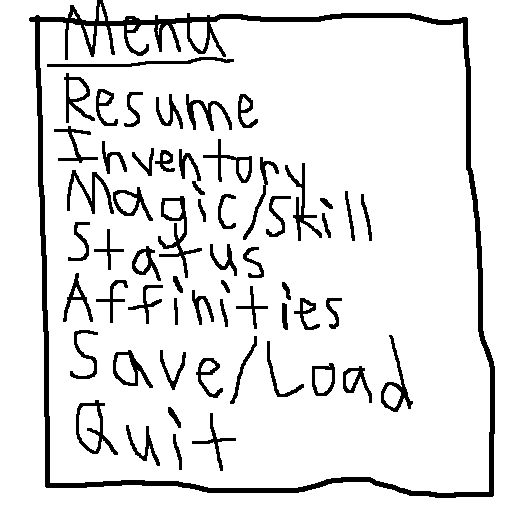 Menu
Resume
Inventory
Magic/Skill
Status
Affinities
Save/Load
Quit